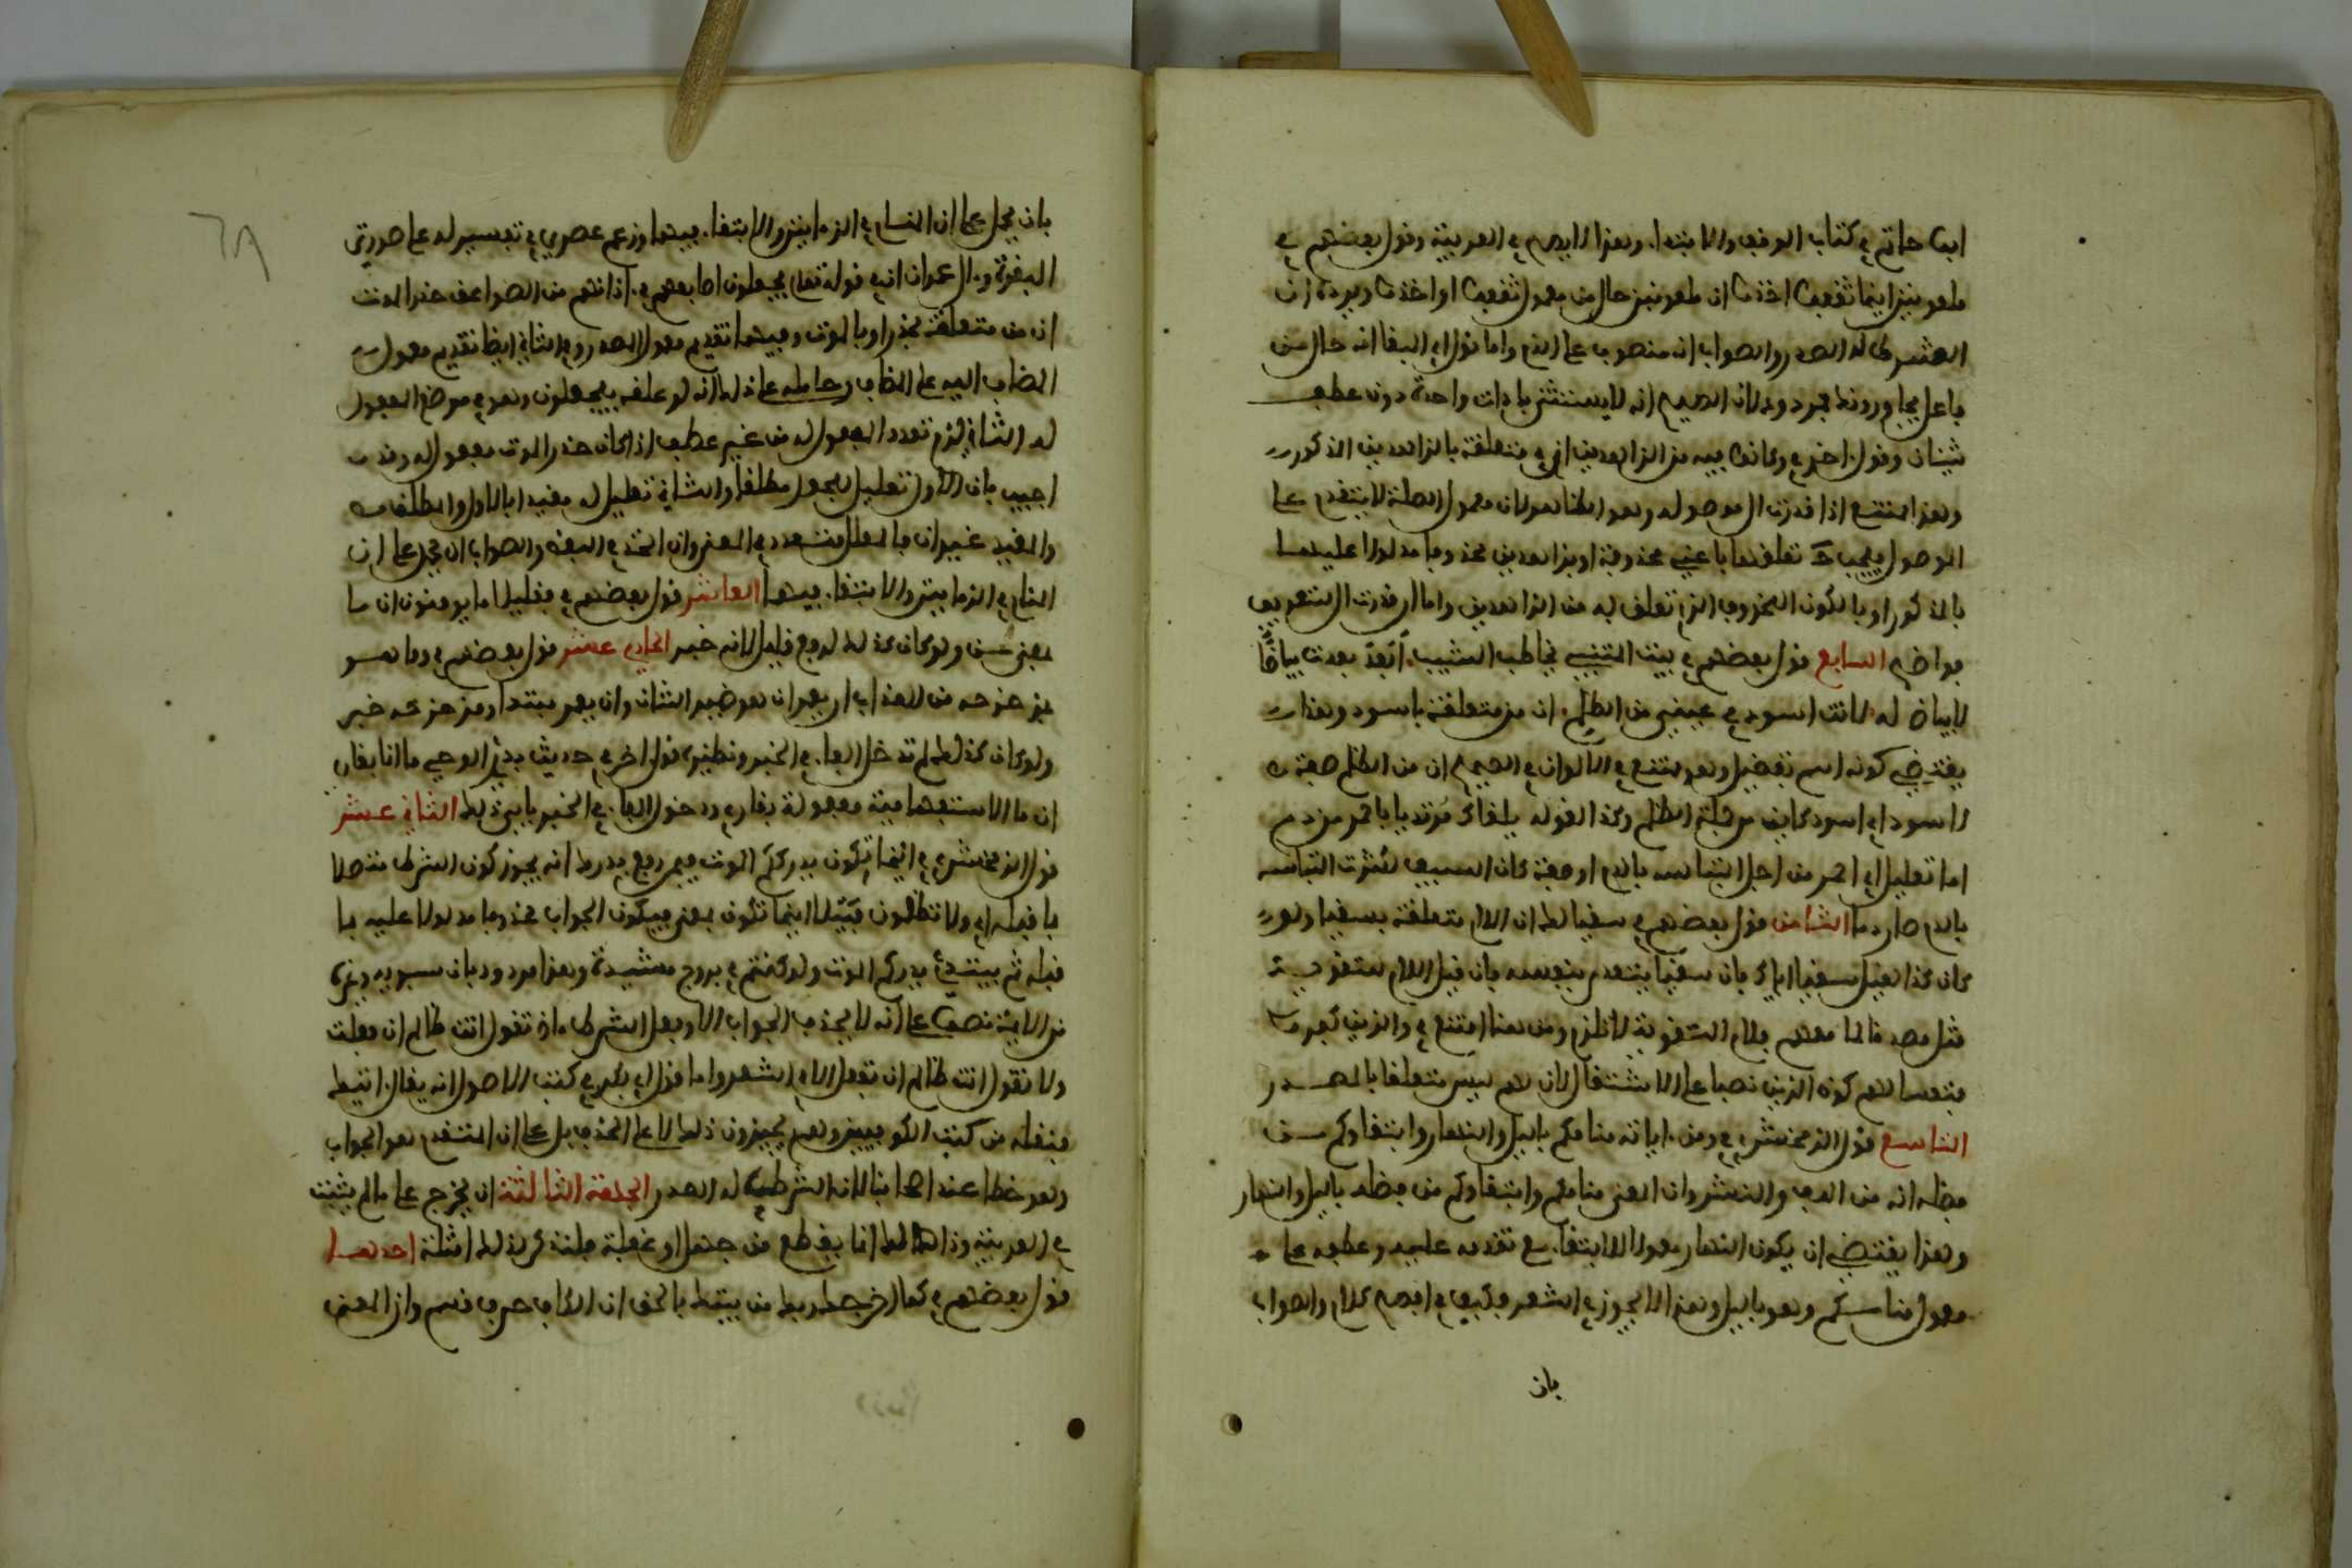 ابي حاتم في كتاب الوقف والابتداء وهذا لا يصح في العربية وقول بعضهم في
ملعونين اينما ثقفوا اخذوا ان ملعونين حال من معمول ثقفوا او اخذوا ويرده ان
الشرط له الصدر والصواب انه منصوب على الذم واما قول ابي البقا انه حال من
فاعل يجاورونك فمردود لان الصحيح انه لا يستثنى باداة واحدة دون عطف
شيئان وقول اخر في وكانوا فيه من الزاهدين ان في متعلقة بالزاهدين المذكور
وهذا ممتنع اذا قدرت ال موصولة وهو الظاهر لان معمول الصلة لا يتقدم على
الموصول فيجب ح تعلقها باعني محذوفة او بزاهدين محذوفا مدلولا عليه
بالمذكور او بالكون المحذوف الذي تعلق به من الزاهدين واما ان قدرت ال للتعريف
فواضح السابع قول بعضهم في بيت المتنبي يخاطب الشيب ابعد بعدت بياضا
لا بياض له لانت اسود في عيني من الظلم ان من متعلقة باسود وهذا
يقتضي كونه اسم تفضيل وهو ممتنع في الالوان في الصحيح ان من الظلم صفة
لاسود اي اسود كاين من جملة الظلم وكذا قوله يلقاك مرتديا باحمر من دم
اما تعليل اي احمر من اجل التباسه بالدم او صفة كان السيف لكثرت التباسه
بالدم صار دما الثامن قول بعضهم في سقيا لك ان اللام متعلقة بسقيا ولو
كان كذا لقيل سقيا اياك فان سقيا يتعدى بنفسه فان قيل اللام للتقوية
مثل مصدقا لما معهم فلام التقوية لا تلزم ومن هنا امتنع في والذين كفروا
فتعسا لهم كون الذين نصبا على الاشتغال لان لهم ليس متعلقا بالمصدر
التاسع قول الزمخشري في ومن اياته منامكم بالليل والنهار وابتغاوكم من
فضله انه من اللف والنشر وان المعنى منامكم وابتغاوكم من فضله بالليل والنهار
وهذا يقتضي ان يكون النهار معمولا للابتغاء مع تقدمه عليه وعطفه على
معمول منامكم وهو بالليل وهذا لا يجوز في الشعر فكيف في افصح كلام والصواب
بان
بان يحمل على ان المنام في الزمانين والابتغاء فيهما وزعم عصري في تفسير له على سورتي
البقرة وال عمران في قوله تعالى يجعلون اصابعهم في اذانهم من الصواعق حذر الموت
ان من متعلقة بحذر او بالموت وفيهما تقديم معمول المصدر وفي الثاني ايضا تقديم معمول
المضاف اليه على المضاف وحامله على ذلك انه لو علقه بيجعلون وهو في موضع المفعول
له الثاني لزم تعدد المفعول له من غير عطف اذ كان حذر الموت مفعولا له وقد
اجيب بان الاول تعليل للجعل مطلقا والثاني تعليل له مقيدا بالاول والمطلق
والمقيد غيران فالمعلل متعدد في المعنى وان اتحد في اللفظ والصواب ان يحمل على ان
المنام في الزمانين والابتغاء فيهما العاشر قول بعضهم في فقليلا ما يومنون ان ما
بمعنى من ولو كان كذلك لرفع قليل لانه خبر الحادي عشر قول بعضهم في وما هو
بمزحزحه من العذاب ان يعمر ان هو ضمير الشان وان يعمر مبتدا وبمزحزحه خبر
ولو كان كذلك لم تدخل الباء في الخبر ونظيره قول اخر في حديث بدء الوحي ما انا بقاري
ان ما الاستفهامية مفعولة بقاري ودخول الباء في الخبر يابى ذلك الثاني عشر
قول الزمخشري في اينما تكونوا يدرككم الموت فيمن رفع يدرك انه يجوز كون الشرط متصلا
بما قبله اي ولا تظلمون فتيلا اينما تكونون يعني فيكون الجواب محذوفا مدلولا عليه بما
قبله ثم يبتدئ يدرككم الموت ولو كنتم في بروج مشيدة وهذا مردود بان سيبويه وغيره
من الايمة نصوا على انه لا يحذف الجواب الا وفعل الشرط ماض تقول انت ظالم ان فعلت
ولا تقول انت ظالم ان تفعل الا في الشعر واما قول ابي بكر في كتب الاصول انه يقال اتيتك
فنقله من كتب الكوفيين وهم يجيزون ذلك لا على الحذف بل على ان المتقدم هو الجواب
وهو خطا عند اصحابنا لان الشرط له الصدر الجهة الثالثة ان يخرج على ما لم يثبت
في العربية وذلك انما يقع عن جهل او غفلة فلنذكر لذلك امثلة احدها
قول بعضهم في كما اخرجك ربك من بيتك بالحق ان الكاف حرف قسم وان المعنى